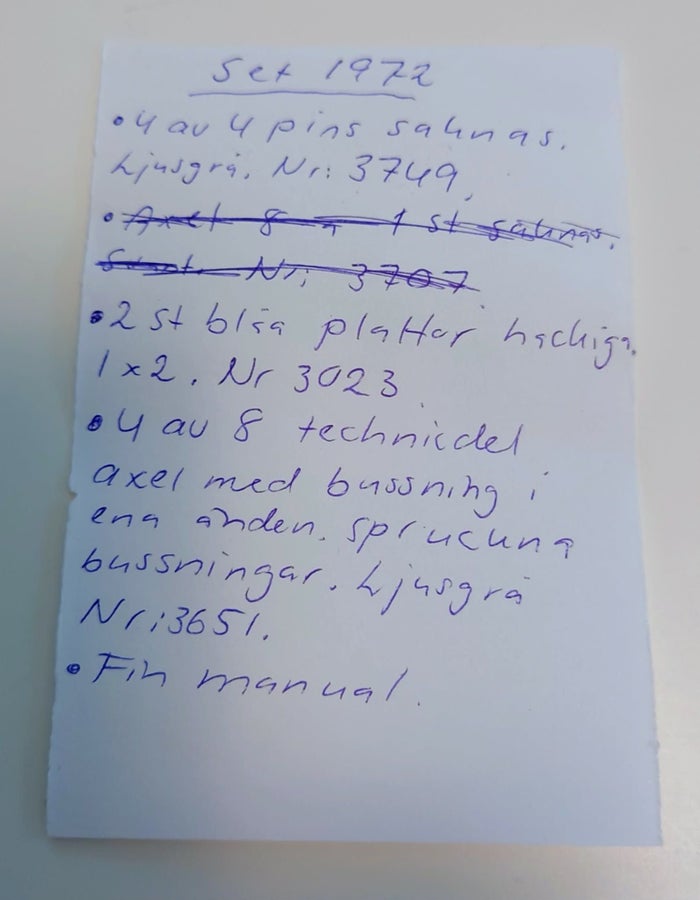 Set 1972
• 4 av 4 pins saknas.
Ljusgrå. Nr: 3749.
• Axel 8 a 1 st saknas.
Svart. Nr: 3707
• 2 st blåa plattor hackiga.
1x2. Nr 3023
• 4 av 8 technicdel
axel med bussning i
ena änden. spruckna
bussningar. Ljusgrå
Nr: 3651.
• Fin manual.